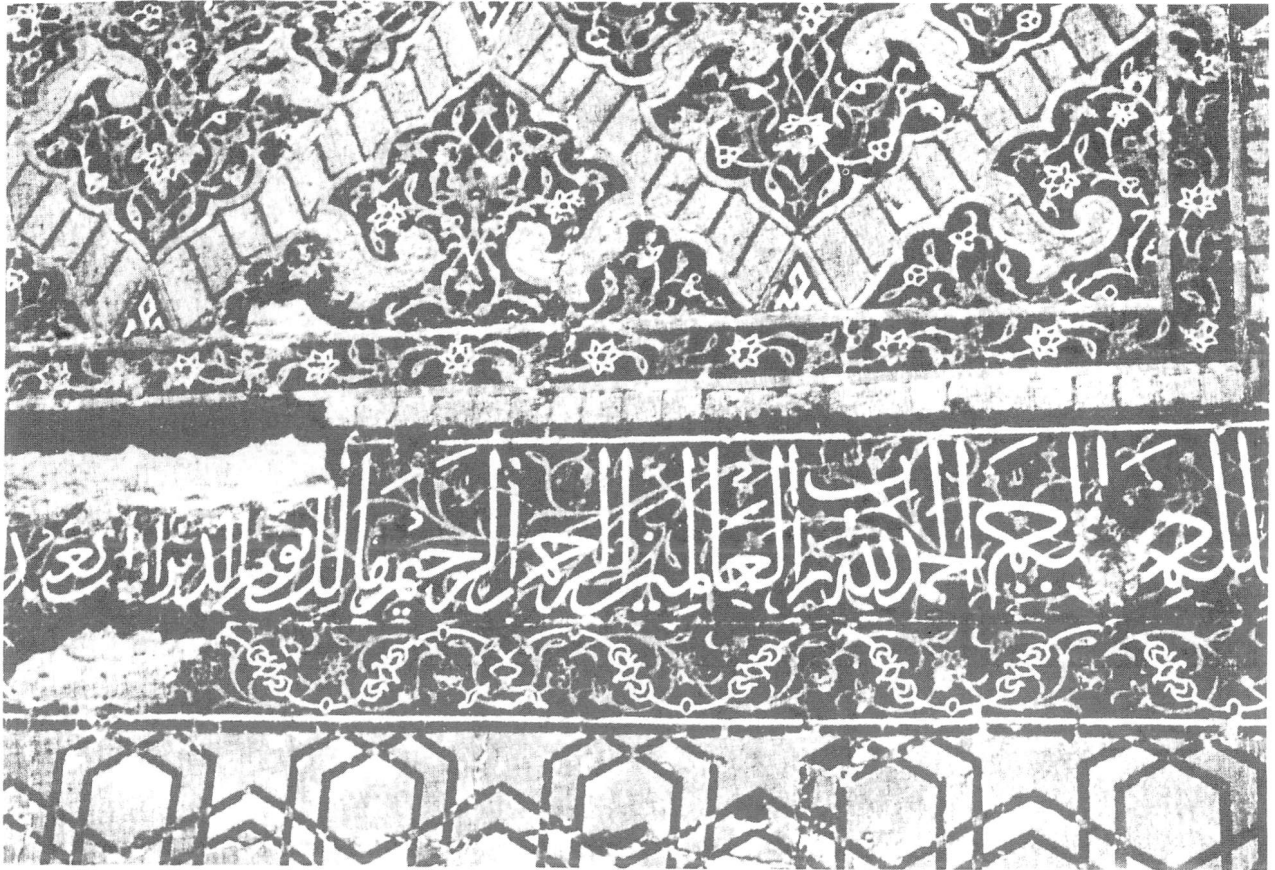 الله الرحمن الرحيم الحمد لله رب العالمين الرحمن الرحيم مالك يوم الدين اياك نعبد